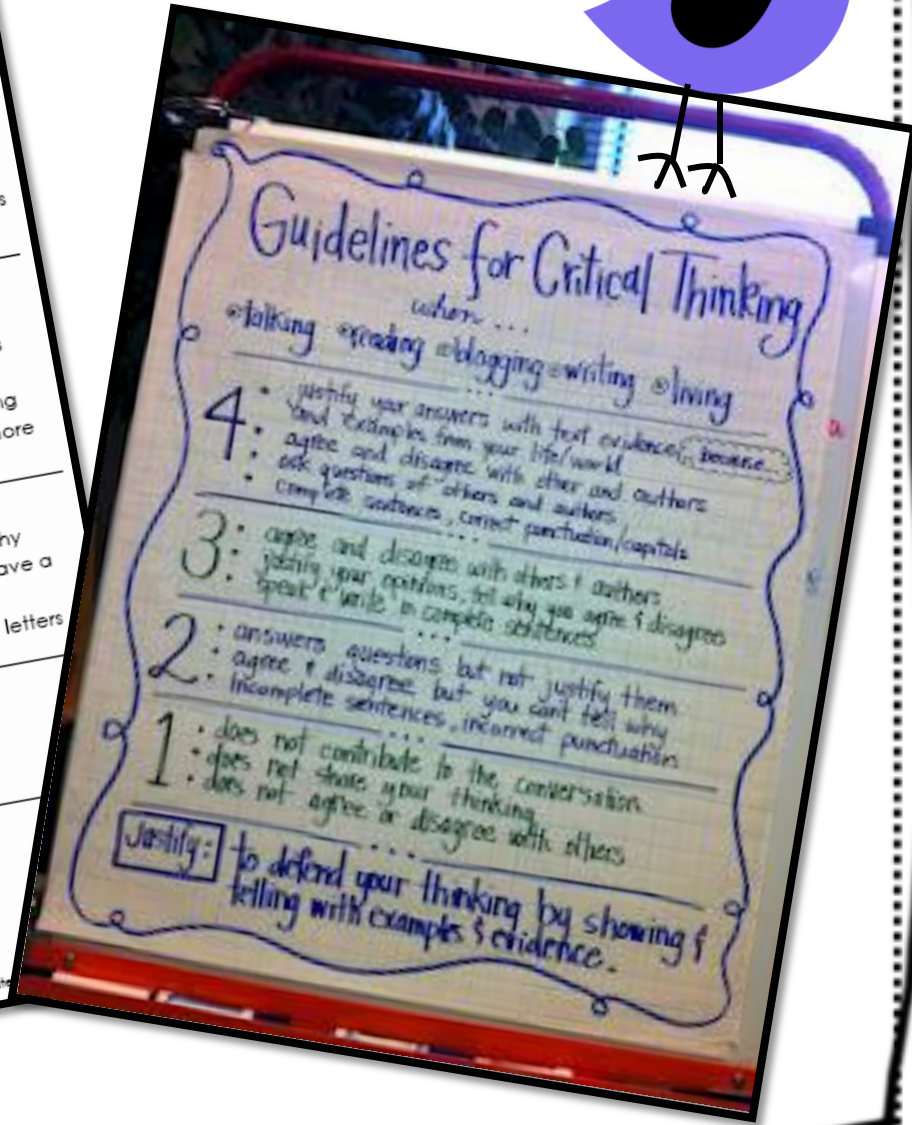 s
s
ng
ore
hy
ave a
letters
Guidelines for Critical Thinking
when...
talking reading blogging writing living
4 • justify your answers with text evidence, because...
and examples from your life/world
• agree and disagree with other and authors
• ask questions of others and authors
• complete sentences, correct punctuation/capitals
3 • agree and disagree with others & authors
• justify your opinions, tell why you agree & disagree
• speak & write in complete sentences
2 • answers questions but not justify them
• agree & disagree but you cant tell why
• incomplete sentences, incorrect punctuation
1 • does not contribute to the conversation
• does not share your thinking
• does not agree or disagree with others
Justify: to defend your thinking by showing &
telling with examples & evidence.